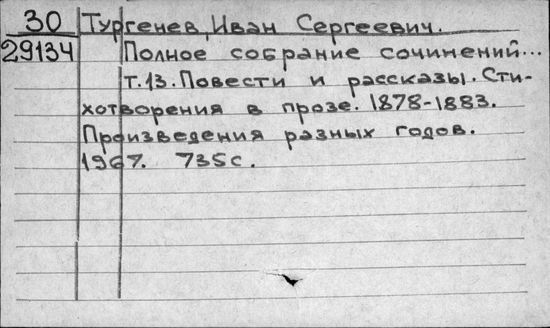 30 Тургенев, Иван Сергеевич.
29134 Полное собрание сочинений...
т.13. Повести и рассказы. Сти-
хотворения в прозе. 1878-1883.
Произведения разных годов.
1967. 735с.